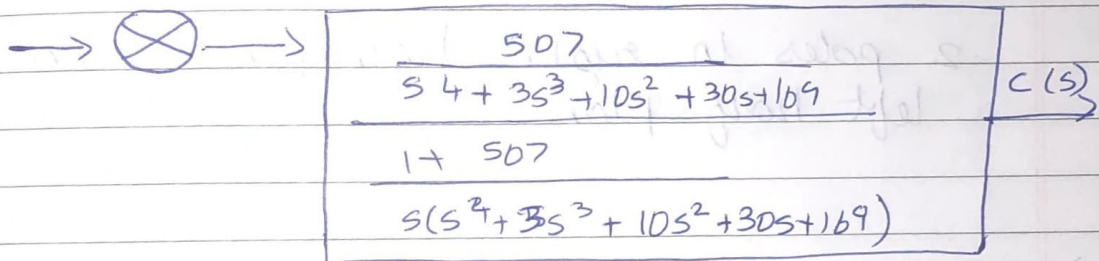 507
s4 + 3s³ + 10s² + 30s + 169
C(S)
1 + 507
s(s⁴ + 3s³ + 10s² + 30s + 169)